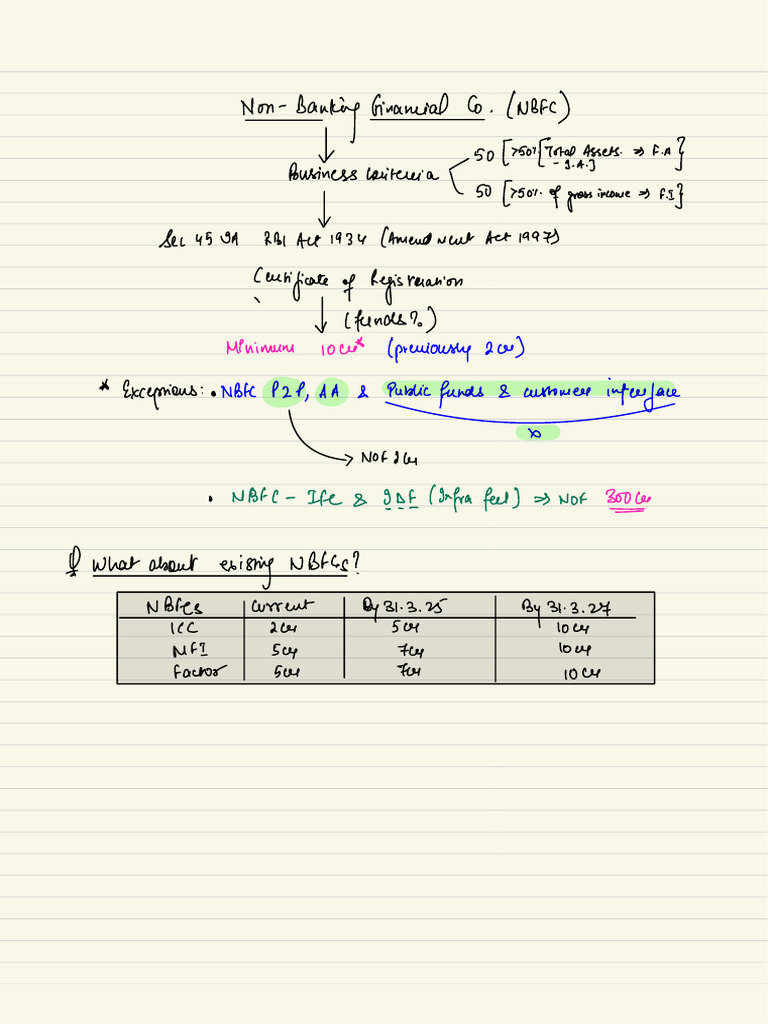 Non-Banking Financial Co. (NBFC)
50 [>50% [Total Assets ⇒ F.A}
- I.A.]
Business Criteria
50 [>50%. of gross income ⇒ F.I]
Sec 45 IA RBI Act 1934 (Amendment Act 1997)
Certificate of Registration
(funds?)
Minimum 10cr* (previously 2cr)
* Exceptions: • NBFC P2P, AA & Public funds & customer interface
NOF 2cr
• NBFC - IFC & IDF (Infra feel) ⇒ NOF 300cr
What about existing NBFCs?
NBFCs Current By 31.3.25 By 31.3.27
ICC 2cr 5cr 10cr
MFI 5cr 7cr 10cr
Factor 5cr 7cr 10cr